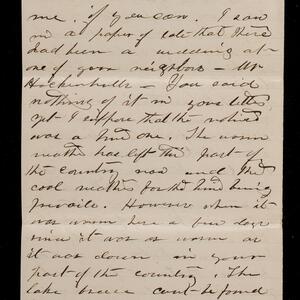 me, if you can. I saw
in a paper of late that there
had been a wedding at
one of your neighbors - Mr
Hockenhulls - You said
nothing of it in your letter
yet I suppose that the notice
was a true one. The warm
weather has left this part of
the country now and the
cool weather for the time being
prevails. However when it
was warm here a few days
since it was as warm as
it was down in your
part of the country. The
lake breeze can't be found